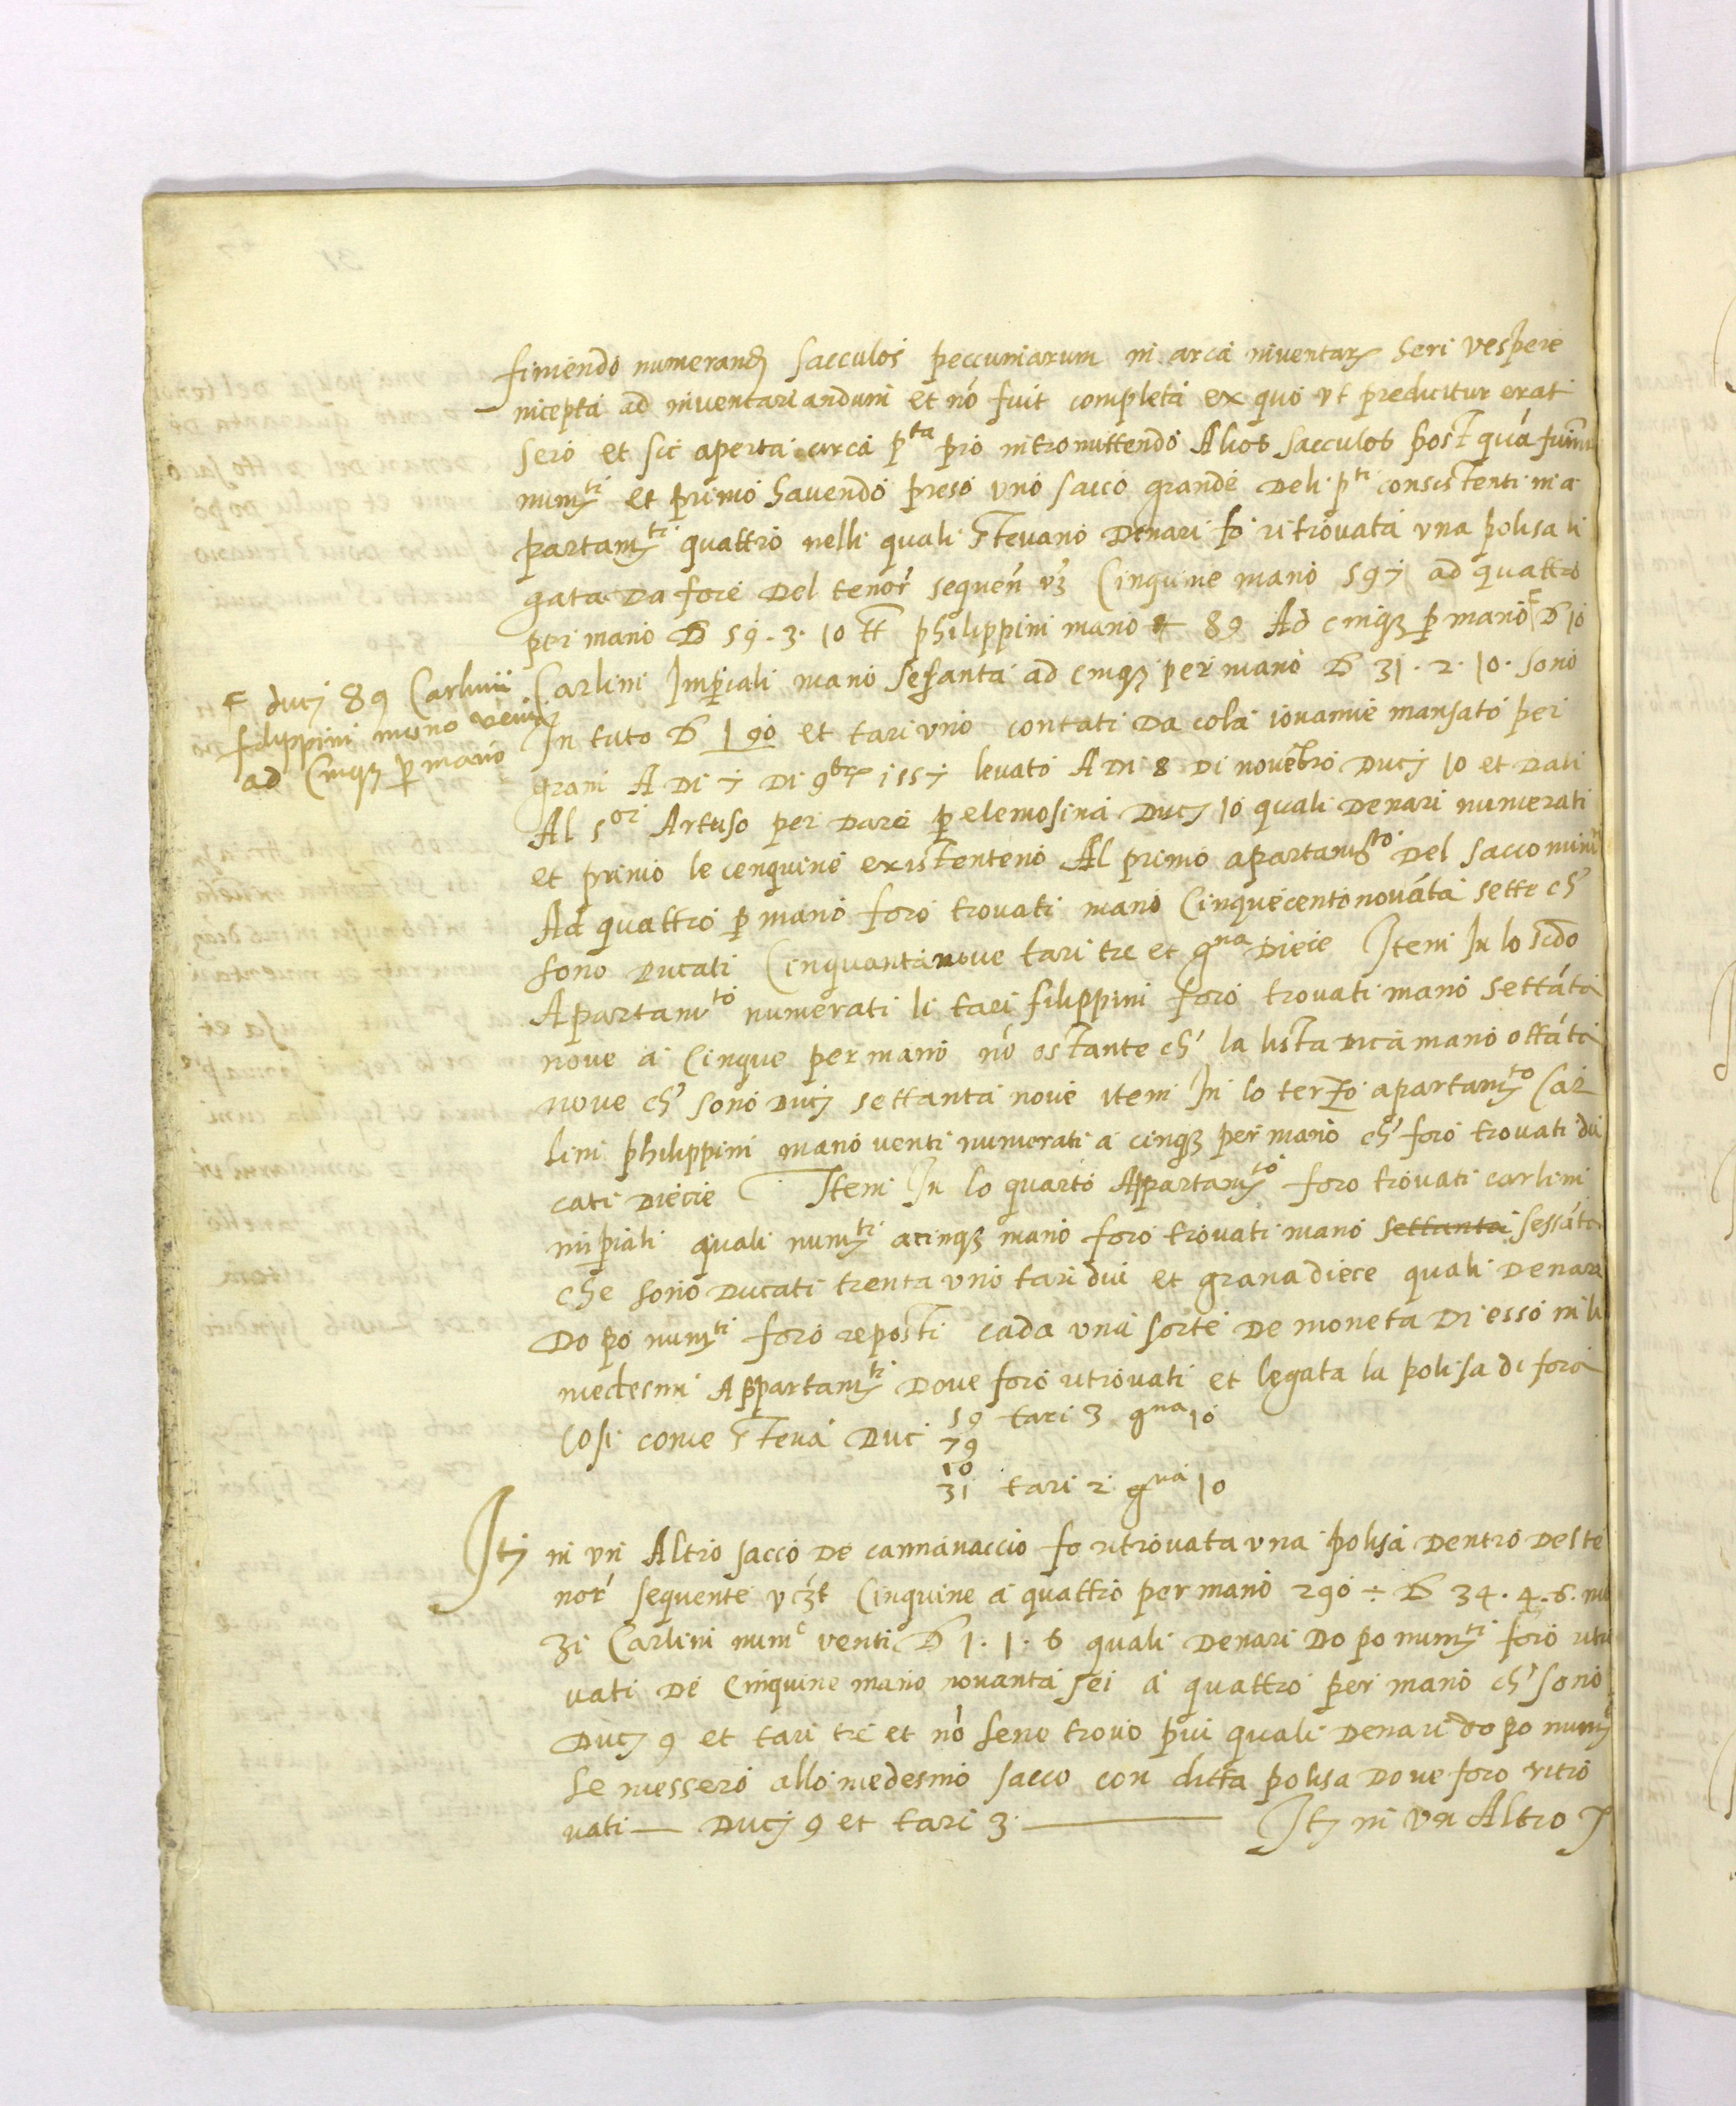 finiendo numerand sacculos peccuniarum in arca inventar seri vespere
incepta ad inventariandum et nō fuit completa ex quo vt predicitur erat
sero et sic aperta arca pta pro intromittendo Alios sacculos post quā
numti et primo havendo preso vno sacco grande deli pti consistenti in a
partamti quattro nelli quali stevano denari fo ritrovata vna polisa li
gata da fore del tenor sequen vz Cinquine mano 597 ad quattro
per mano D 59. 3. 10 philippini mano 89 Ad cinqz p mano D 10
Carlini Imperiali mano sessanta ad cinqz per mano D 31. 2. 10. sono
In tuto D 190 et tari vno contati da cola iovanne mansato per
grani A di 7 di 9bre 1557 levato A di 8 di novēbro ducj 10 et dati
Al sor Artuso per dare p elemosina ducj 10 quali denari numerati
et primo le cenquine existenteno Al primo apartamto del sacco
Ad quattro p mano foro trovati mano Cinquecentonovāta sette ch
sono ducati Cinquantanove tari tre et gna diece Item In lo scdo
Apartamto numerati li tari filippini foro trovati mano settāta
nove a Cinque per mano nō ostante ch la lista dica mano ottāta
nove ch sono ducj settanta nove item In lo terzo apartamto Car
lini philippini mano venti numerati a cinqz per mano ch foro trovati du
cati diecie Item In lo quarto Appartamto foro trovati carlini
inpiali quali numti a cinqz mano foro trovati mano settanta sessāta
che sono ducati trenta vno tari dui et grana diece quali denari
do po numti foro reposti cada vna sorte de moneta di esso in li
medesmi Appartamti dove foro ritrovati et legata la polisa di fora
Cosi come steva duc 59 tari 3 gna 10
79
10
31 tari 2 gna 10
F ducj 89 Carlini
filippini mano venti
ad Cinqz p mano
Itj in vn Altro sacco de cannavaccio fo ritrovata vna polisa dentro del te
nor sequente vczt Cinquine a quattro per mano 290 ÷ D 34. 4. 6.
zi Carlini numo venti D 1. 1. 6 quali denari do po numti foro ritro
vati de Cinquine mano novanta sei a quattro per mano ch sono
ducj 9 et tari tre et nō seno trovo piu quali denari do po numti
se messero allo medesmo sacco con ditta polisa dove foro ritro
vati — ducj 9 et tari 3 — Itj in vn Altro